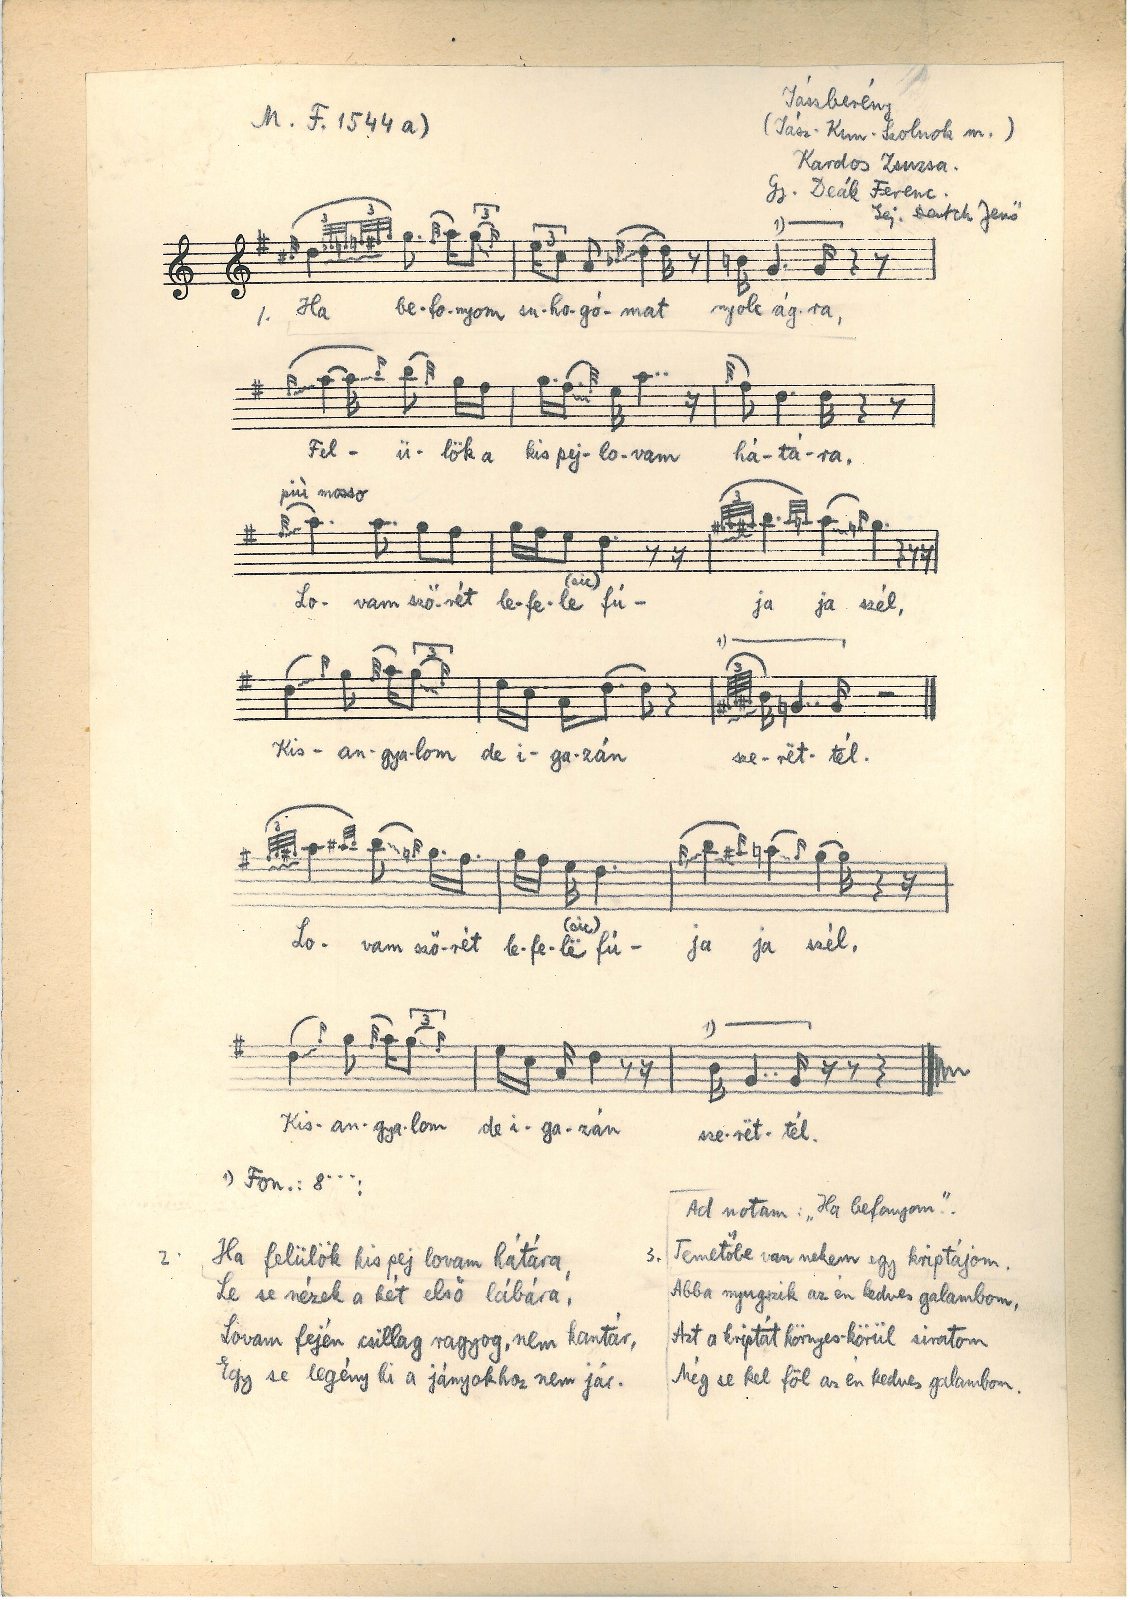 M. F. 1544 a)
Jászberény
(Jász-Kun-Szolnok m.)
Kardos Zsuzsa.
Gy. Deák Ferenc.
Lej. Deutsch Jenő
3 3 3 3 1)
1. Ha be-fo-nyom su-ho-gó-mat nyolc ág-ra,
Fel-ü-lök a kis pej-lo-vam há-tá-ra.
più mosso
3
(sic)
Lo-vam sző-rét le-fe-le fú-ja ja szél,
3 3 1)
Kis-an-gya-lom de i-ga-zán sze-rët-tél.
3
(sic)
Lo-vam sző-rét le-fe-lë fú-ja ja szél,
3 1)
Kis-an-gya-lom de i-ga-zán sze-rët-tél.
1) Fon.: 8
Ad notam: „Ha befonyom".
2. Ha felülök kis pej lovam hátára,
Le se nézek a két első lábára,
Lovam fején csillag ragyog, nem kantár,
Egy se legény ki a jányokhoz nem jár.
3. Temetőbe van nekem egy kriptájom.
Abba nyugszik az én kedves galambom,
Azt a kriptát környes-körül siratom
Még se kel föl az én kedves galambom.